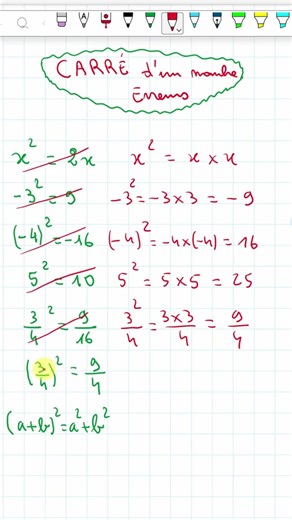 CARRÉ d'un nombre
Erreurs
x² = 2x x² = x × x
-3² = 9 -3² = -3×3 = -9
(-4)² = -16 (-4)² = -4×(-4) = 16
5² = 10 5² = 5×5 = 25
3²/4 = 9/16 3²/4 = 3×3/4 = 9/4
(3/4)² = 9/4
(a+b)² = a²+b²